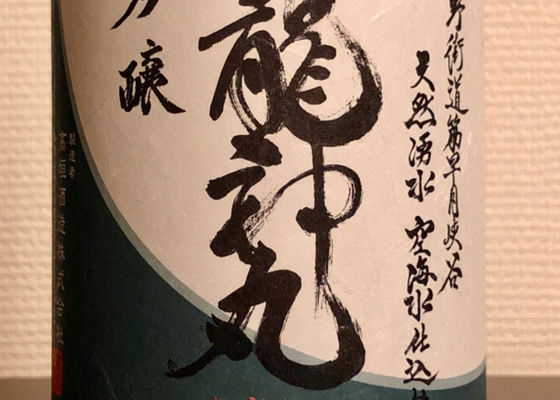 野街道筋早月峡谷
天然湧水 空海水仕込
龍神丸
吟醸
製造者
高垣酒造株式会社